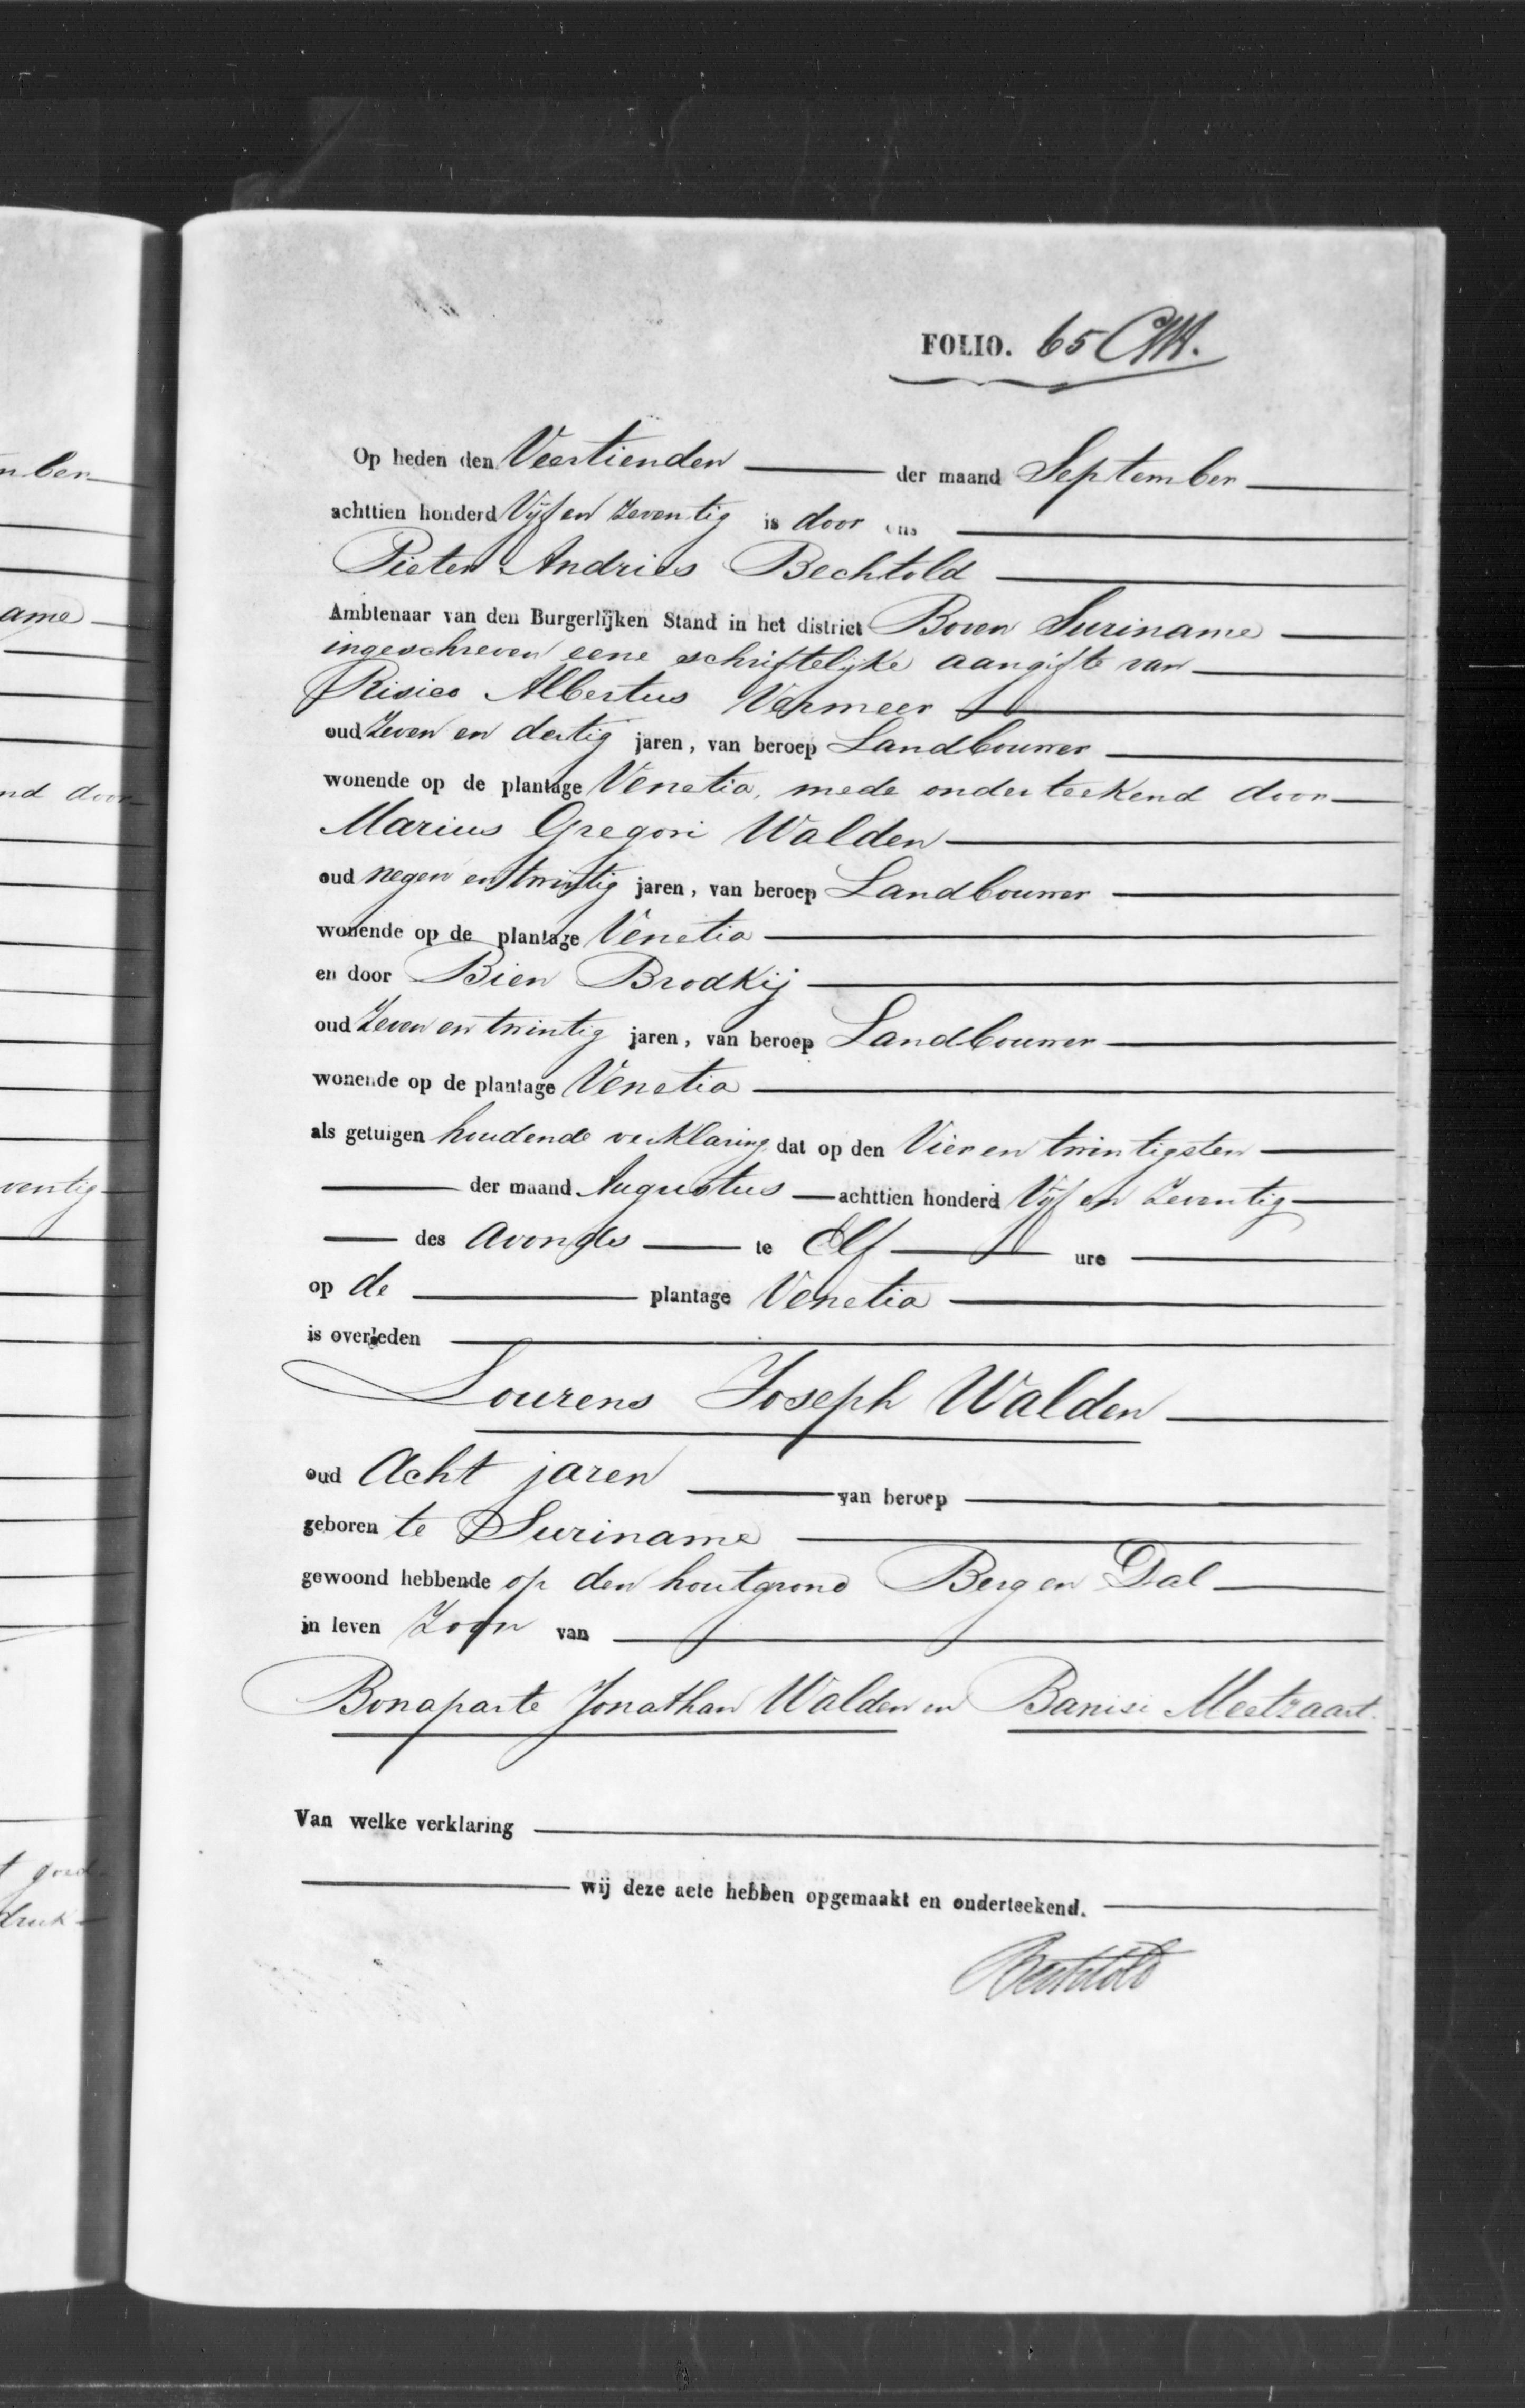 nber
ame
nd door
ventig
t goed
druk
FOLIO. 65
Op heden den Veertienden der maand September
achttien honderd Vijf en Zeventig is door ons
Pieter Andries Bechtold
Ambtenaar van den Burgerlijken Stand in het district Boven Suriname
ingeschreven eene schriftelijke aangifte van
Risico Albertus Vermeer
oud Zeven en dertig jaren, van beroep Landbouwer
wonende op de plantage Venetia, mede onderteekend door
Marius Gregori Walden
oud negen en twintig jaren, van beroep Landbouwer
wonende op de plantage Venetia
en door Bien Brodkij
oud Zeven en twintig jaren, van beroep Landbouwer
wonende op de plantage Venetia
als getuigen houdende verklaring dat op den Vier en twintigsten
der maand Augustus achttien honderd Vijf en Zeventig
des avonds te Elf ure
op de plantage Venetia
is overleden
Lourens Joseph Walden
oud Acht jaren van beroep
geboren te Suriname
gewoond hebbende op den houtgrond Berg en Dal
in leven Zoon van
Bonaparte Jonathan Walden en Banisi Meetzaart.
Van welke verklaring
wij deze acte hebben opgemaakt en onderteekend.
Bechtold